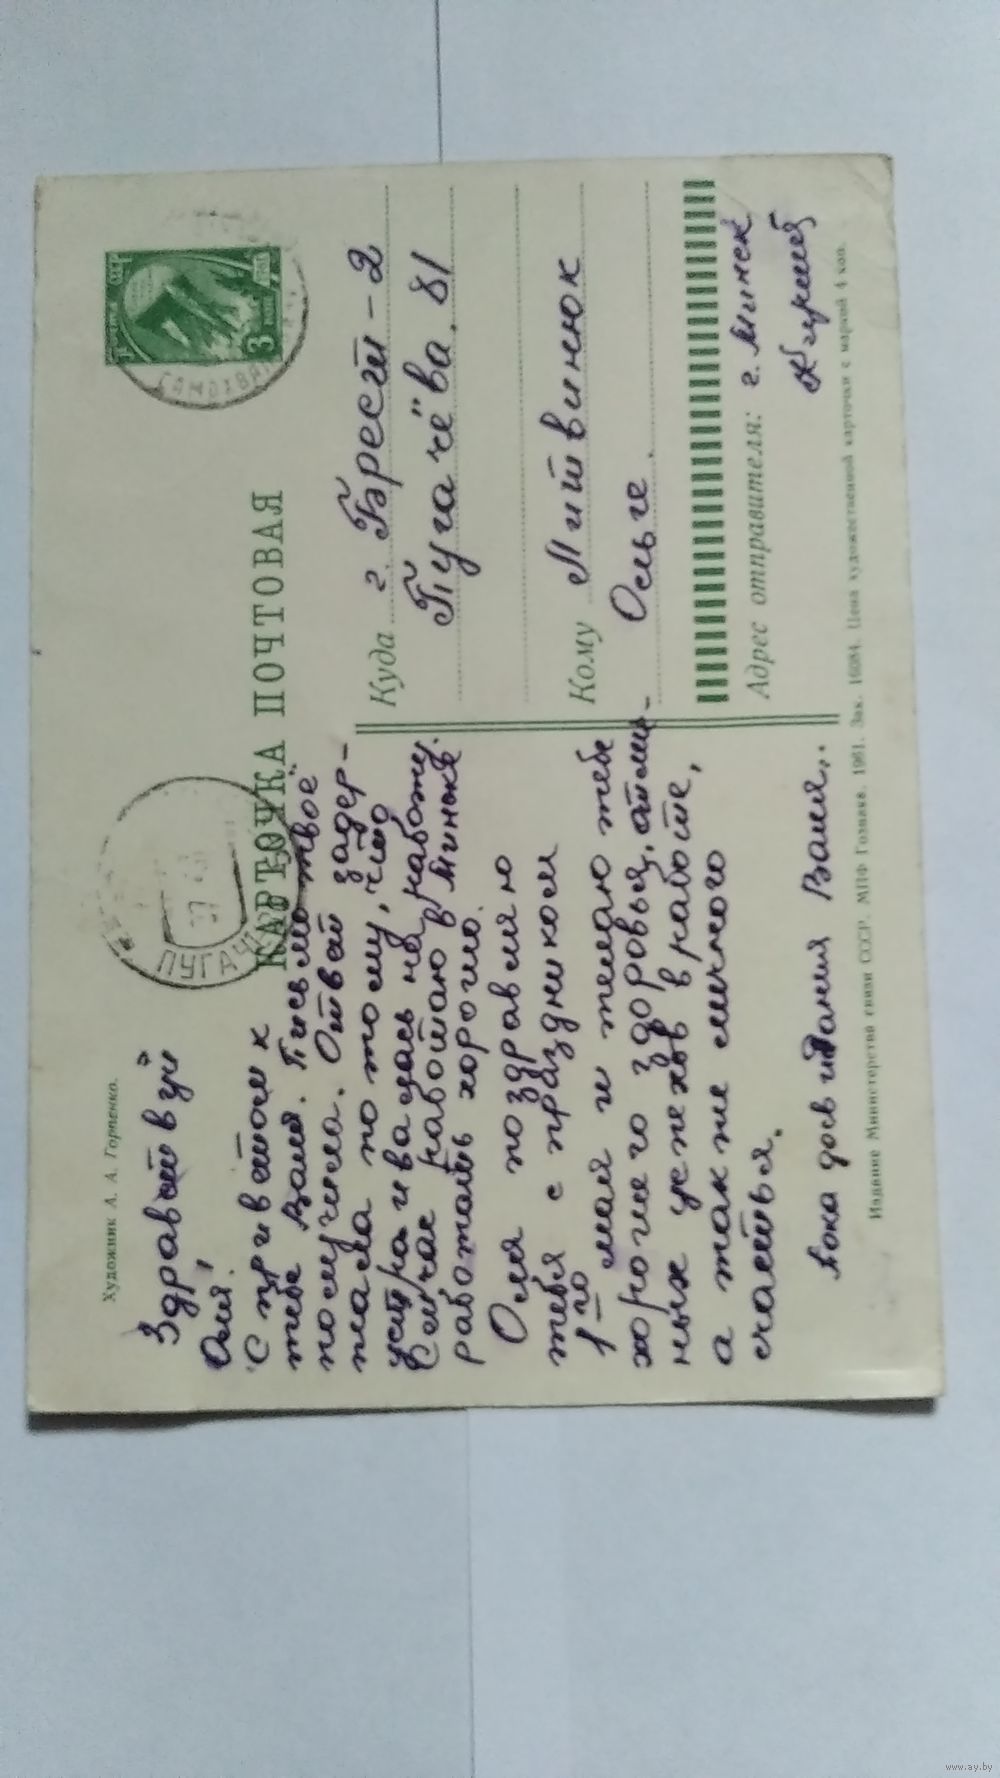 Художник А. А. Горпенко.
КАРТОЧКА ПОЧТОВАЯ
3
ПУГАЧ
Здравствуй
Оля!
С приветом к
тебе Валя. Письмо твоё
получила. Ответ задер-
жала потому, что
устраивалась на работу.
Сейчас работаю в Минске
работать хорошо.
Оля поздравляю
тебя с праздником
1-го мая и желаю тебе
хорошего здоровья, отлич-
ных успехов в работе,
а также личного
счастья.
Пока досвидания Валя..
Куда г. Брест-2
Пугачёва. 81
Кому Литвинюк
Ольге.
Адрес отправителя: г. Минск
Издание Министерства связи СССР. МПФ Гознака. 1961. Зак. 16084. Цена художественной карточки с маркой 4 коп.
www.ay.by